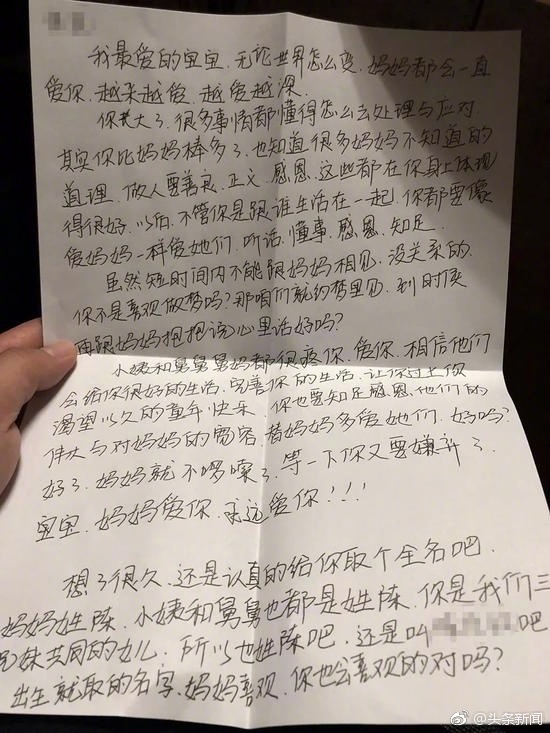 我最爱的宝宝.无论世界怎么变.妈妈都会一直
爱你.越来越爱.越爱越深.
你长大了.很多事情都懂得怎么去处理与应对.
其实你比妈妈棒多了.也知道很多妈妈不知道的
道理.做人要善良.正义.感恩.这些都在你身上体现
得很好.以后.不管你是跟谁生活在一起.你都要像
爱妈妈一样爱她们.听话.懂事.感恩.知足.
虽然短时间内不能跟妈妈相见.没关系的.
你不是喜欢做梦吗?那咱们就约梦里见.到时候
再跟妈妈抱抱说心里话好吗?
小姨和舅舅舅妈都很疼你.爱你.相信他们
会给你很好的生活.完善你的生活.让你过上你
渴望以久的童年快乐.你也要知足感恩.他们的
伟大与对妈妈的宽容.替妈妈多爱她们.好吗?
好了.妈妈就不啰嗦了.等一下你又要嫌弃了.
宝宝.妈妈爱你.永远爱你!!!
想了很久.还是认真的给你取个全名吧.
妈妈姓陈.小姨和舅舅也都是姓陈.你是我们三
兄妹共同的女儿.所以也姓陈吧.还是叫 吧
出生就取的名字.妈妈喜欢.你也会喜欢的对吗?
@头条新闻